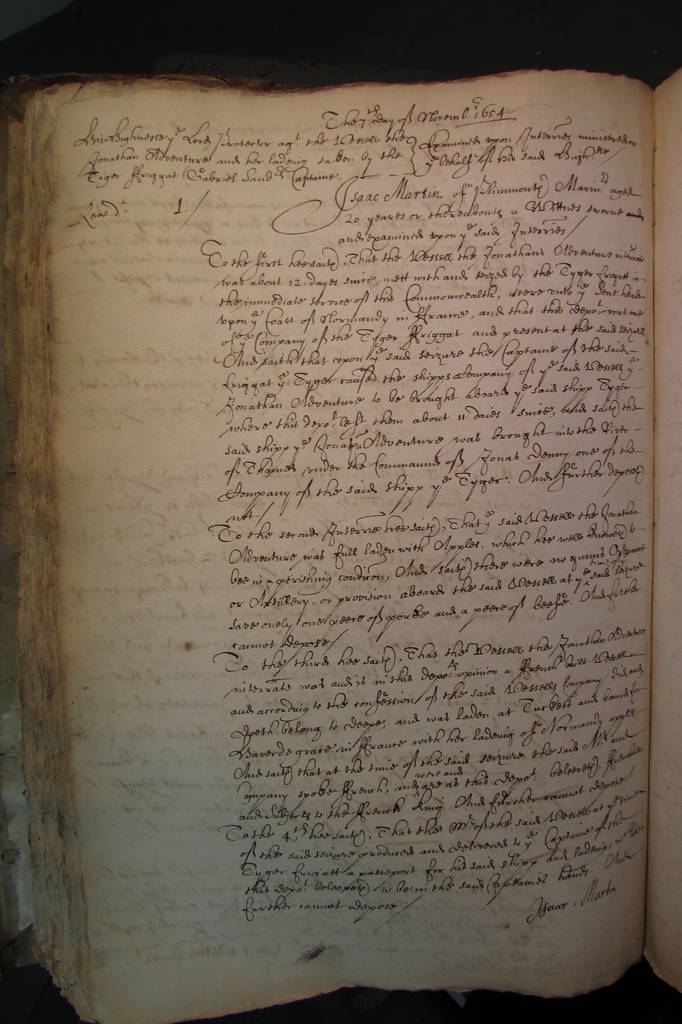 The 7th day of Novemb.r 1654
His Highnesse ye Lord Protector agt the Vessell the
Jonathan Adventure and her lading taken by the
Tyger ffriggat Gabriel Sanders Captaine
Examined upon Interries ministred on
ye behalfe of his said Highnes /
1. /
Isaac Martin of Marinr aged
20 yeares or thereabouts a Wittnes sworne and
and examined upon ye said Interries /
To the first hee saith, That the Vessell the Jonathan Adventure
was about 12. dayes since mett with and seized by the Tyger ffrigatt in
the immediate service of this Commonwealth,
upon ye Coast of Normandy in ffrance, and that this depot was one
of ye Company of the Tyger ffriggat and present at the said seizure
And saith that upon ye said seizure the Captaine of the said
ffriggat ye Tyger caused the shipps Company of ye said Vessell ye
Jonathan Adventure to be brought aboard ye said shipp Tyger
where this depot left them about 11 daies since, and saith the
said shipp ye Jonathan Adventure was brought into the River
of Thames under the Command of Jonas Denny one of the
Company of the said shipp ye Tyger. And further deposeth
not /
To the second Interrie hee saith, That ye said Vessell the Jonathan
Adventure was full laden with Apples, which hee well knoweth to
bee in a perishing condicon, And saith there were no gunns
or Artillery, or provision aboard the said Vessell at ye tyme of ye said seizure
save onely one peece of porke and a peece of beefe. And further
cannot depose /
To the third hee saith, That the Vessell the Jonathan Adventure
interrate was and is in this depots opinion a ffrench built Vessell
and according to the confession of the said Vessells Company did and
doeth belong to deepe, and was laden at and bound for
Haverdegrace in ffrance with her lading of Normandy apples
And saith that at the time of the said seizure the said Mr and
Company spoke ffrench, and were and are as this depot beleeveth ffrenchmen
and Subjects to the ffrench King. And further cannot depose /
To the 4th hee saith, That the Mr of the said Vessell at ye time
of the said seizure produced and delivered to ye Captaine of the
Tyger ffrigatt a passeport for his said shipp and lading
this depot beleeveth to be in the said Captaines hands And
further cannot depose /
Isaac Martin